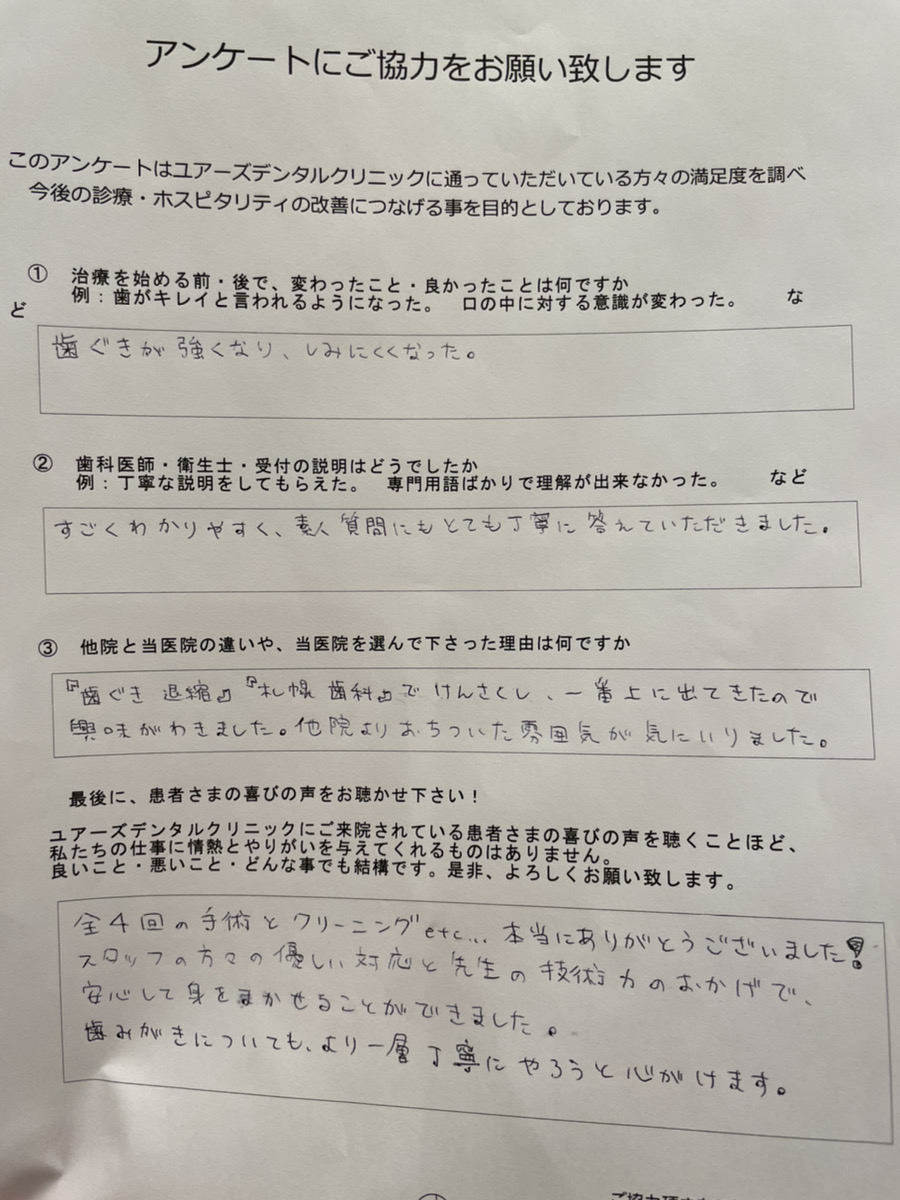 アンケートにご協力をお願い致します
このアンケートはユアーズデンタルクリニックに通っていただいている方々の満足度を調べ
今後の診療・ホスピタリティの改善につなげる事を目的としております。
① 治療を始める前・後で、変わったこと・良かったことは何ですか
例：歯がキレイと言われるようになった。 口の中に対する意識が変わった。 な
ど
歯ぐきが強くなり、しみにくくなった。
② 歯科医師・衛生士・受付の説明はどうでしたか
例：丁寧な説明をしてもらえた。 専門用語ばかりで理解が出来なかった。 など
すごくわかりやすく、素人質問にもとても丁寧に答えていただきました。
③ 他院と当医院の違いや、当医院を選んで下さった理由は何ですか
『歯ぐき 退縮』『札幌 歯科』でけんさくし、一番上に出てきたので
興味がわきました。他院よりおちついた雰囲気が気にいりました。
最後に、患者さまの喜びの声をお聴かせ下さい！
ユアーズデンタルクリニックにご来院されている患者さまの喜びの声を聴くことほど、
私たちの仕事に情熱とやりがいを与えてくれるものはありません。
良いこと・悪いこと・どんな事でも結構です。是非、よろしくお願い致します。
全4回の手術とクリーニングetc... 本当にありがとうございました！
スタッフの方々の優しい対応と先生の技術力のおかげで、
安心して身をまかせることができました。
歯みがきについても、より一層丁寧にやろうと心がけます。